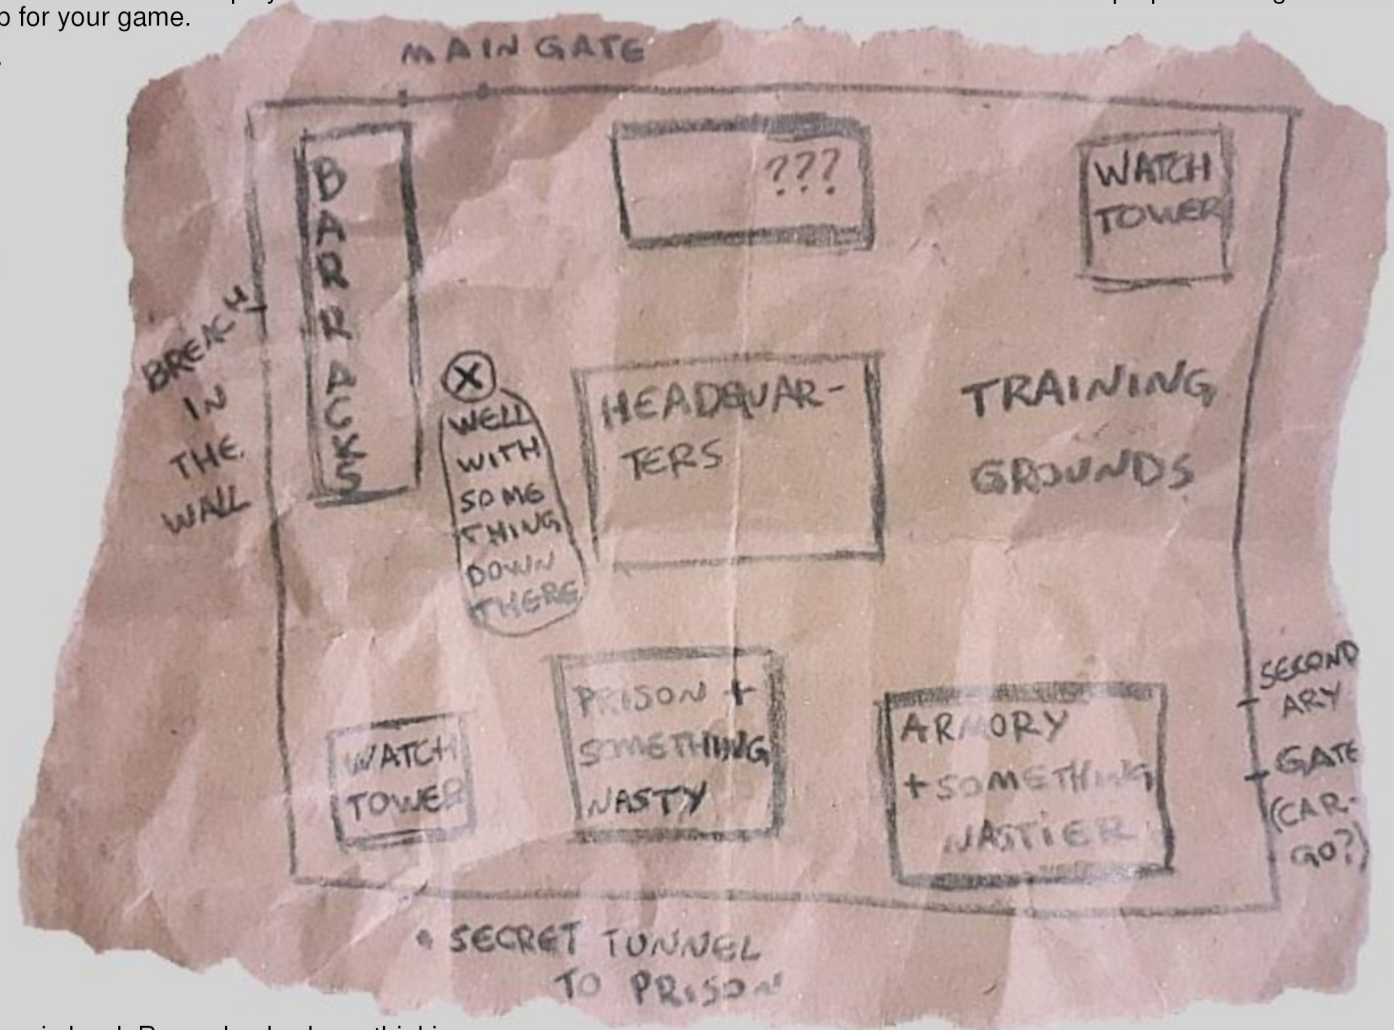 p for your game.
MAIN GATE
BARRACKS
???
WATCH
TOWER
BREACH
IN
THE
WALL
X
WELL
WITH
SOME
THING
DOWN
THERE
HEADQUAR-
TERS
TRAINING
GROUNDS
WATCH
TOWER
PRISON +
SOMETHING
NASTY
ARMORY
+ SOMETHING
NASTIER
SECOND
ARY
GATE
(CAR-
GO?)
• SECRET TUNNEL
TO PRISON